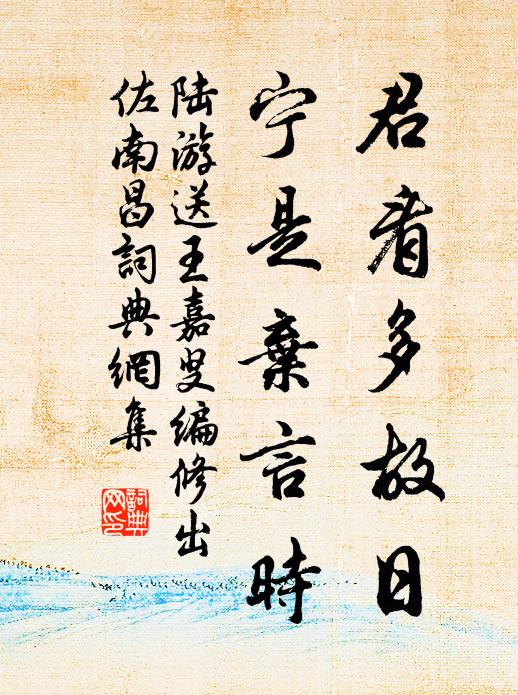 君看多故日
宁是棄言時
陆游送王嘉叟编修出
佐南昌詞典網集
詞典网印